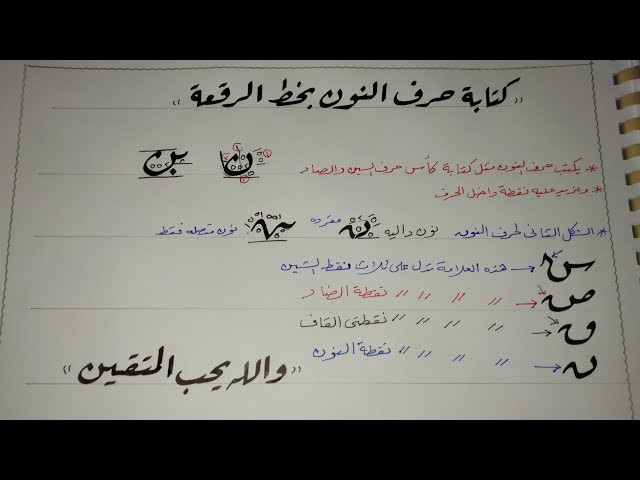 "كتابة حرف النون بخط الرقعة"
* يكتب حرف النون مثل كتابة كأس حرف السين والصاد
* ونزيد عليه نقطة داخل الحرف
* الشكل الثانى لحرف النون نون داليه مفرده نون متصله فقط
س ← هذه العلامة تدل على ثلاث نقط الشين
ص ← " " " " نقطة الضاد
ق ← " " " " نقطتى القاف
ن ← " " " " نقطة النون
"والله يحب المتقين"